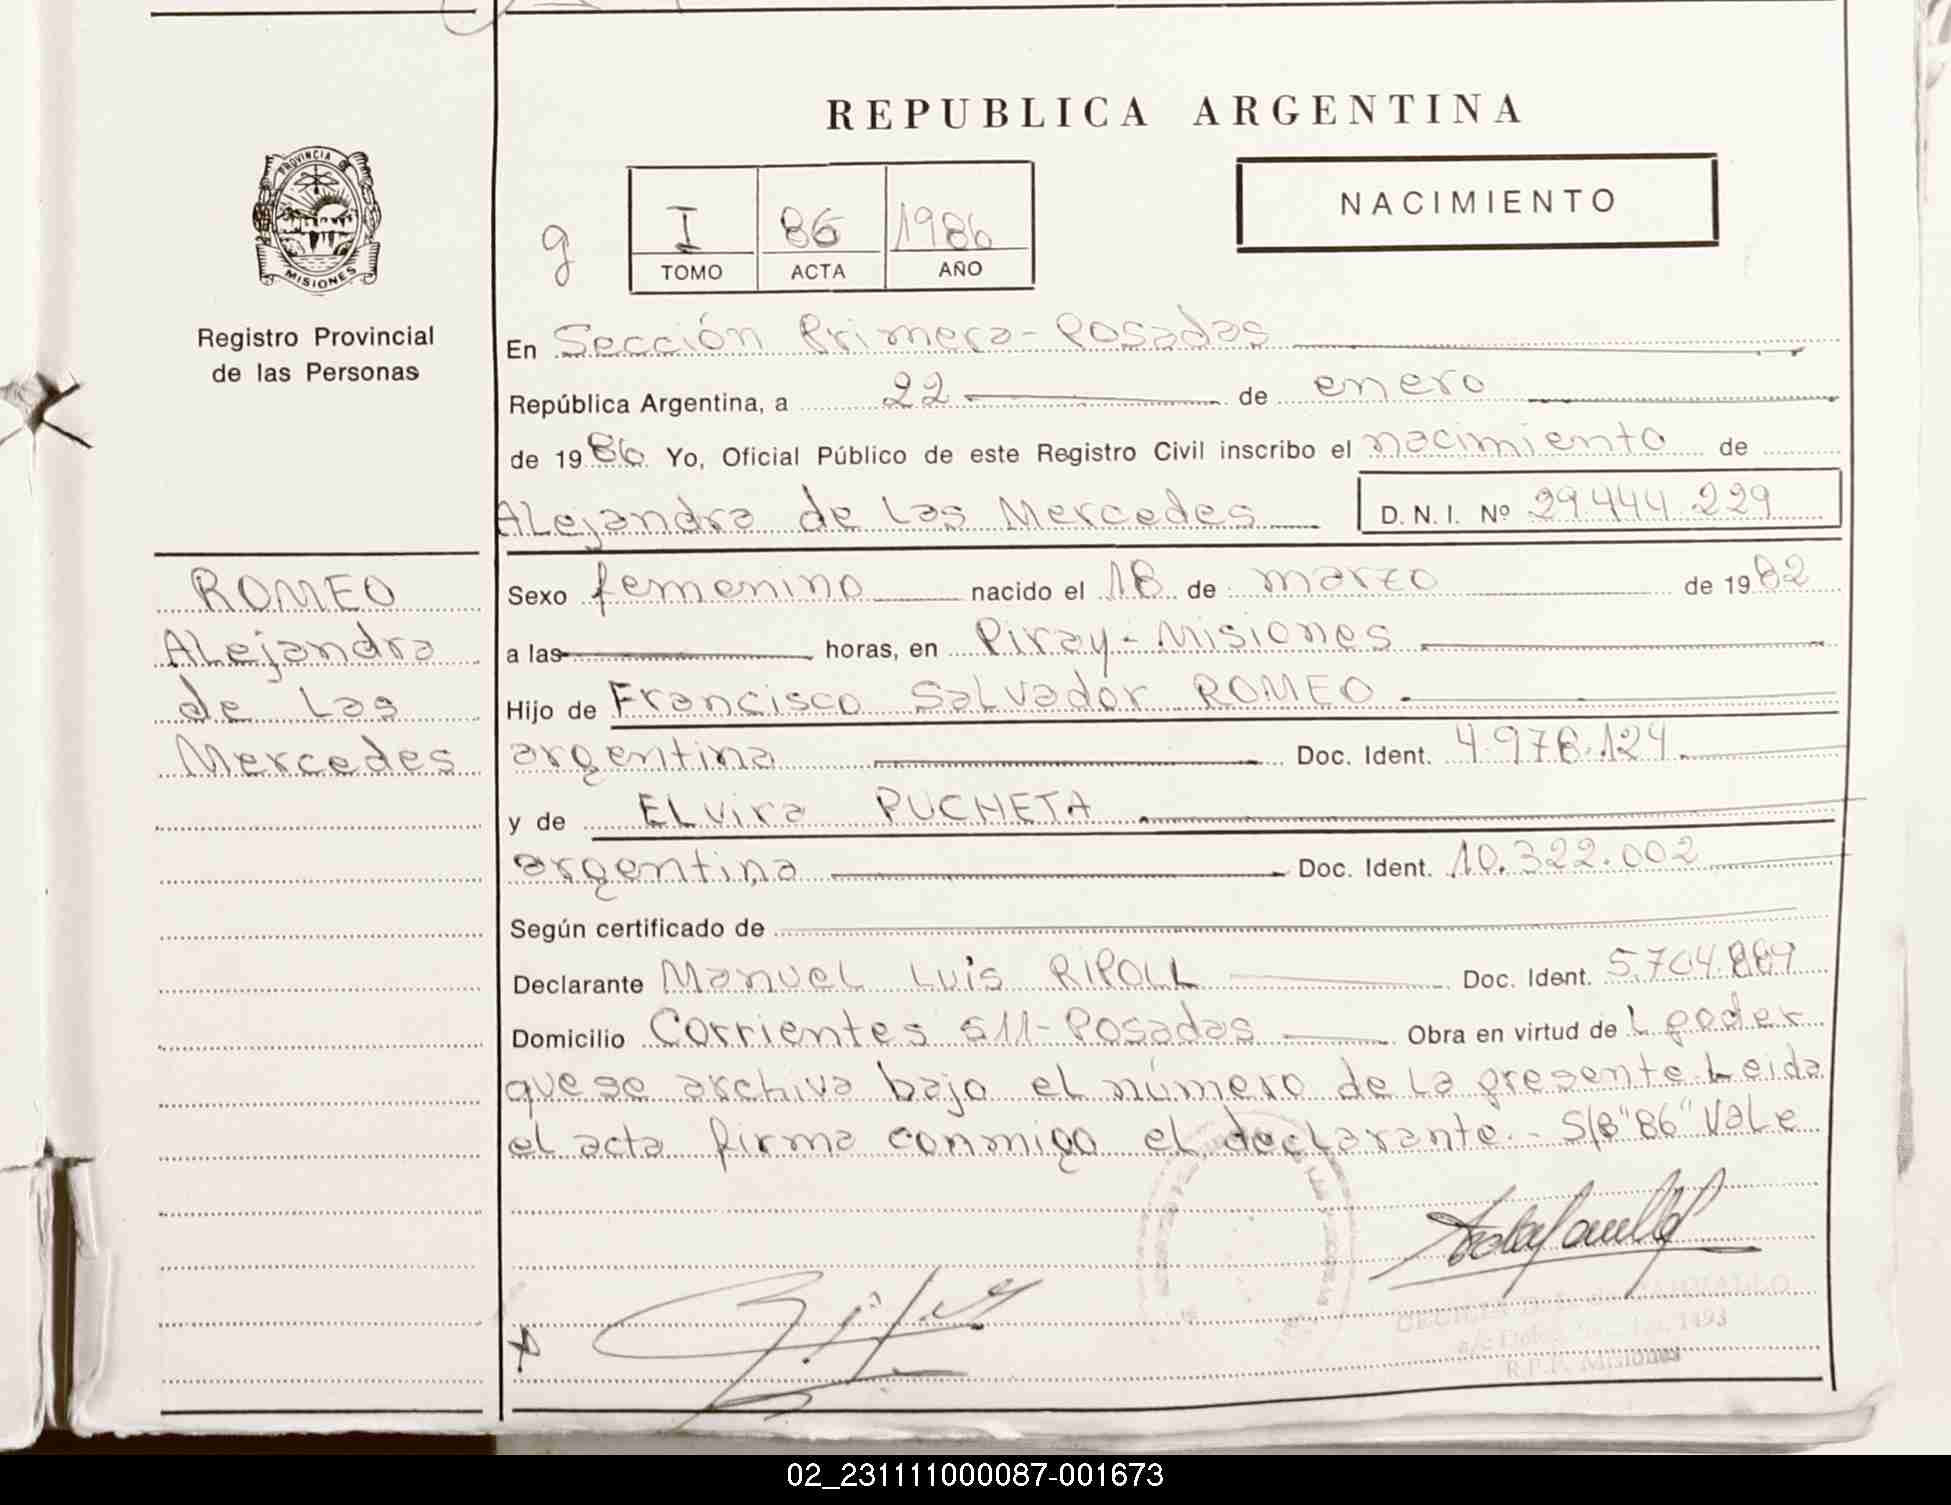 REPUBLICA ARGENTINA
PROVINCIA DE
MISIONES
Registro Provincial
de las Personas
g
I 86 1986
TOMO ACTA AÑO
NACIMIENTO
En Sección Primera - Posadas
República Argentina, a 22 de enero
de 1986 Yo, Oficial Público de este Registro Civil inscribo el nacimiento de
Alejandra de Las Mercedes D. N. I. Nº 29.444.229
ROMEO
Alejandra
de Las
Mercedes
Sexo femenino nacido el 18 de marzo de 1982
a las horas, en Piray - Misiones
Hijo de Francisco Salvador ROMEO
argentina Doc. Ident. 4.978.124
y de Elvira PUCHETA
argentina Doc. Ident. 10.322.002
Según certificado de
Declarante Manuel Luis RIPOLL Doc. Ident. 5.704.889
Domicilio Corrientes 511 - Posadas Obra en virtud de L poder
que se archiva bajo el número de la presente Leida
el acta firma conmigo el declarante. - S/B "86" Vale
R.P.P. Misiones
02_231111000087-001673